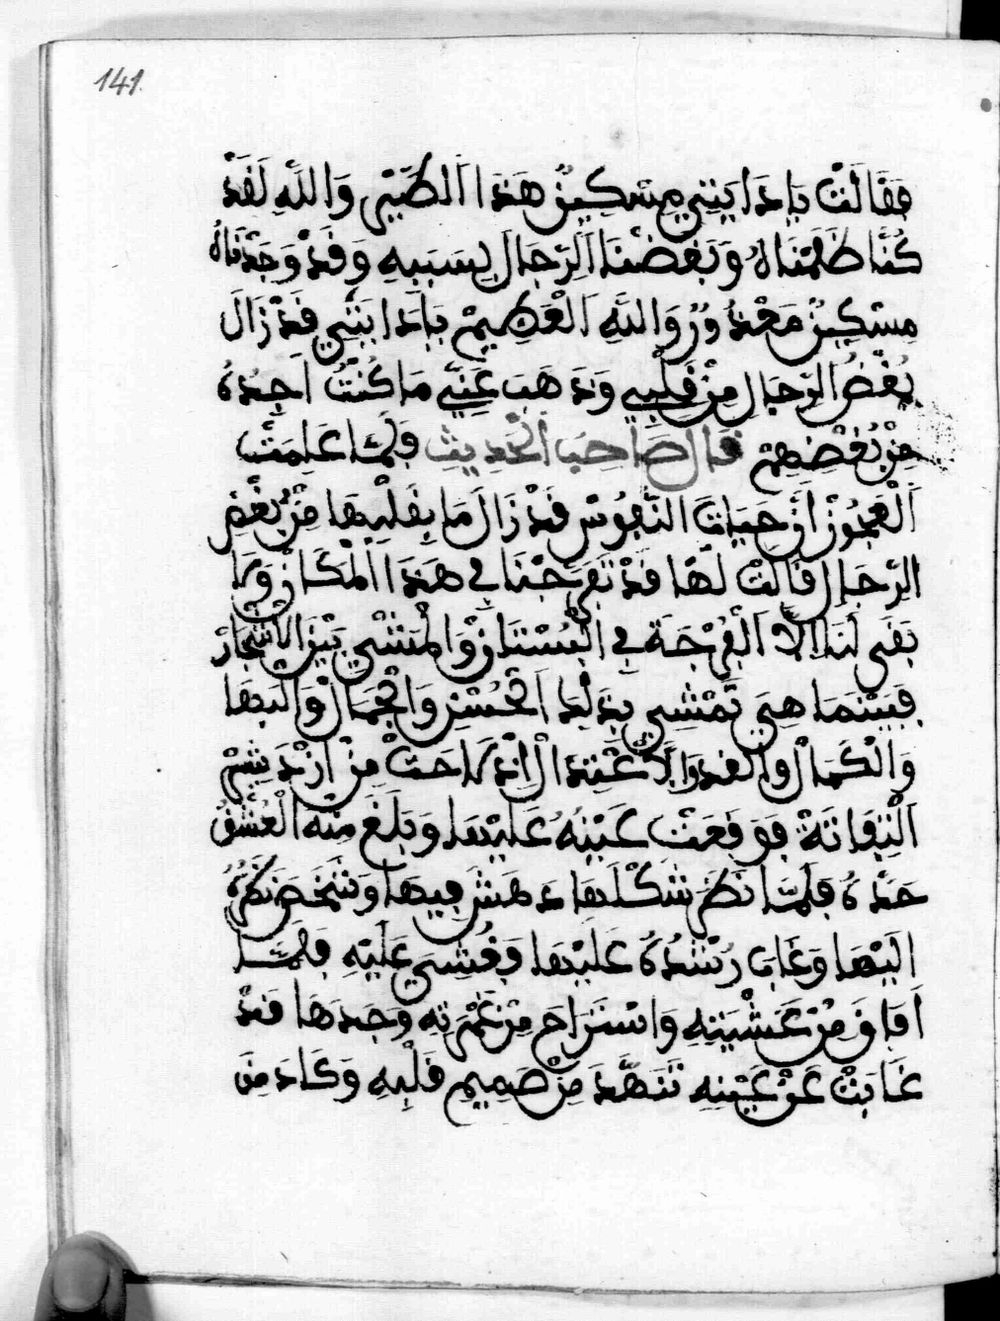 141.
فَقَالَتْ يَا دَايَتِي مِسْكِينٌ هَذَا الطَّيْرِ وَاللَّهِ لَقَدْ
كُنَّا ظَلَمْنَاهُ وَبَغَضْنَا الرِّجَالَ بِسَبَبِهِ وَقَدْ وَجَدْنَاهُ
مِسْكِينٌ مَعْذُورٌ وَاللَّهِ الْعَظِيمْ يَا دَايَتِي قَدْ زَالَ
بُغْضُ الرِّجَال مِنْ قَلْبِي وَذَهَبَ عَنِّي مَا كُنْتُ أَجِدُهُ
مِنْ بُغْضِهِمْ قال صاحب الحديث فَلَمَّا عَلِمَتْ
الْعَجُوزْ أَنْ حيات النُّفُوسْ قَدْ زَالَ مَا بِقَلْبِهَا مِنْ بُغْضِ
الرِّجَالِ قَالَتْ لَهَا قَدْ تَفَرَّجْنَا فِي هَذَا الْمَكَانْ وَمَا
بَقَى لَنَا إِلَّا الْفُرْجَة فِي الْبُسْتَانْ وَالْمَشْيِ بَيْنَ الْأَشْجَارْ
فَبَيْنَمَا هِيَ تَمْشِي بِذَلِكَ الْحُسْنِ وَالْجَمَالْ وَالْبَهَا
وَالْكَمَالْ وَالْقَدِّ وَالْاعْتِدَالْ إِذْ لَاحَتْ مِنْ أَرْدَشِيرْ
الْتِفَاتَةْ فَوَقَعَتْ عَيْنُهُ عَلَيْهَا وَبَلَغَ مِنْهُ الْعُشْقُ
حَدَّهُ فَلَمَّا نَظَرَ شَكْلَهَا دَهَشَ فِيهَا وَشَخَصَ نَظَرُهُ
إِلَيْهَا وَغَابَ رُشْدُهُ عَلَيْهَا وَغُشِيَ عَلَيْهِ فَلَمَّا
أَفَاقَ مِنْ غَشْيَتِهِ وَاسْتَرَاحِ مِنْ غَمْرَتِهِ وَجَدَهَا قَدْ
غَابَتْ عَنْ عَيْنِهِ تَنَهَّدَ مِنْ صَمِيمِ قَلْبِهِ وَكَادَ مِنَ